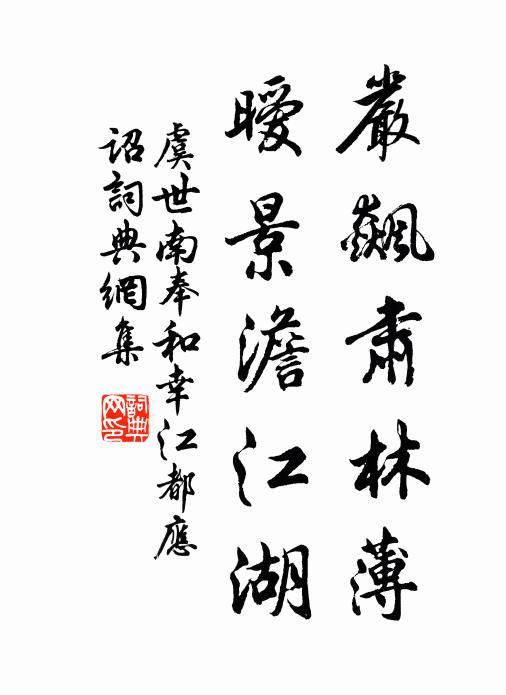 嚴飆肅林薄
曖景澹江湖
虞世南奉和幸江都應
詔詞典網集
詞典网印